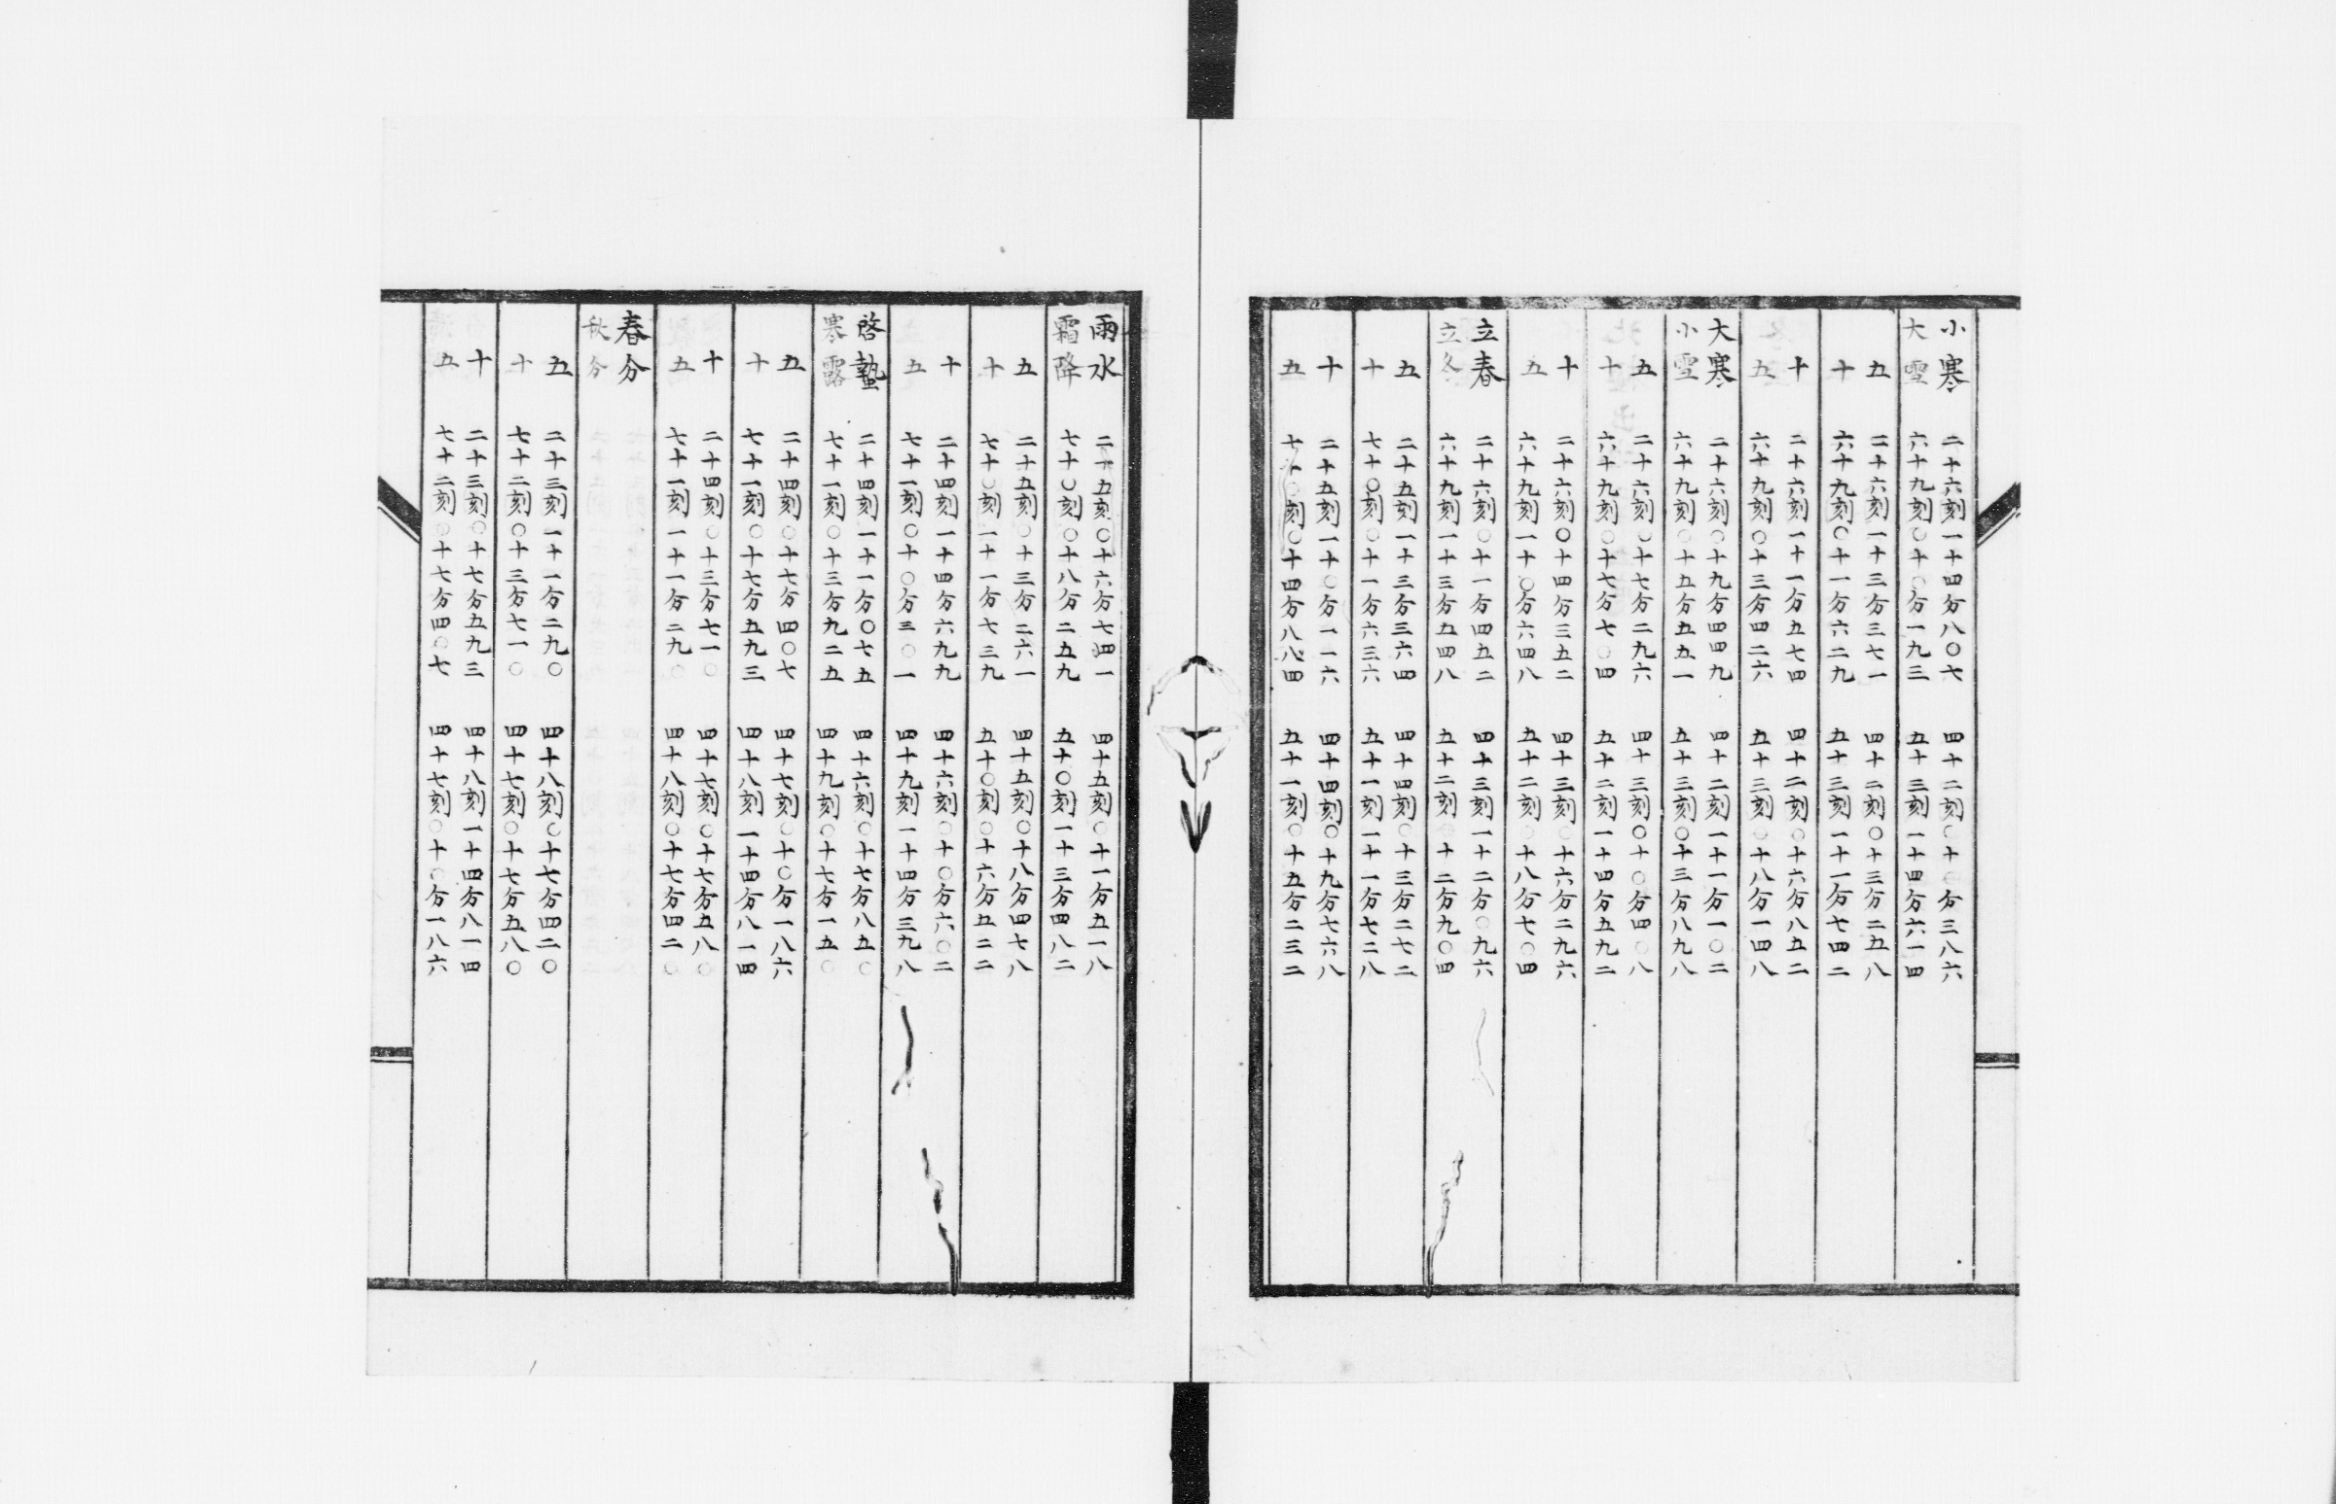 小寒 二十六刻一十四分八〇七 四十二刻〇十〇分三八六
大雪 六十九刻〇十〇分一九三 五十三刻一十四分六一四
五 二十六刻一十三分三七一 四十二刻〇十三分二五八
十 六十九刻〇十一分六二九 五十三刻一十一分七四二
十 二十六刻一十一分五七四 四十二刻〇十六分八五二
五 六十九刻〇十三分四二六 五十三刻〇十八分一四八
大寒 二十六刻〇十九分四四九 四十二刻一十一分一〇二
小雪 六十九刻〇十五分五五一 五十三刻〇十三分八九八
五 二十六刻〇十七分二九六 四十三刻〇十〇分四〇八
十 六十九刻〇十七分七〇四 五十二刻一十四分五九二
十 二十六刻〇十四分三五二 四十三刻〇十六分二九六
五 六十九刻一十〇分六四八 五十二刻〇十八分七〇四
立春 二十六刻〇十一分四五二 四十三刻一十二分〇九六
立冬 六十九刻一十三分五四八 五十二刻〇十二分九〇四
五 二十五刻一十三分三六四 四十四刻〇十三分二七二
十 七十〇刻〇十一分六三六 五十一刻一十一分七二八
十 二十五刻一十〇分一一六 四十四刻〇十九分七六八
五 七十〇刻〇十四分八八四 五十一刻〇十五分二三二
雨水 二十五刻〇十六分七四一 四十五刻〇十一分五一八
霜降 七十〇刻〇十八分二五九 五十〇刻一十三分四八二
五 二十五刻〇十三分二六一 四十五刻〇十八分四七八
十 七十〇刻一十一分七三九 五十〇刻〇十六分五二二
十 二十四刻一十四分六九九 四十六刻〇十〇分六〇二
五 七十一刻〇十〇分三〇一 四十九刻一十四分三九八
啓蟄 二十四刻一十一分〇七五 四十六刻〇十七分八五〇
寒露 七十一刻〇十三分九二五 四十九刻〇十七分一五〇
五 二十四刻〇十七分四〇七 四十七刻〇十〇分一八六
十 七十一刻〇十七分五九三 四十八刻一十四分八一四
十 二十四刻〇十三分七一〇 四十七刻〇十七分五八〇
五 七十一刻一十一分二九〇 四十八刻〇十七分四二〇
春分
秋分
五 二十三刻一十一分二九〇 四十八刻〇十七分四二〇
十 七十二刻〇十三分七一〇 四十七刻〇十七分五八〇
十 二十三刻〇十七分五九三 四十八刻一十四分八一四
五 七十二刻〇十七分四〇七 四十七刻〇十〇分一八六